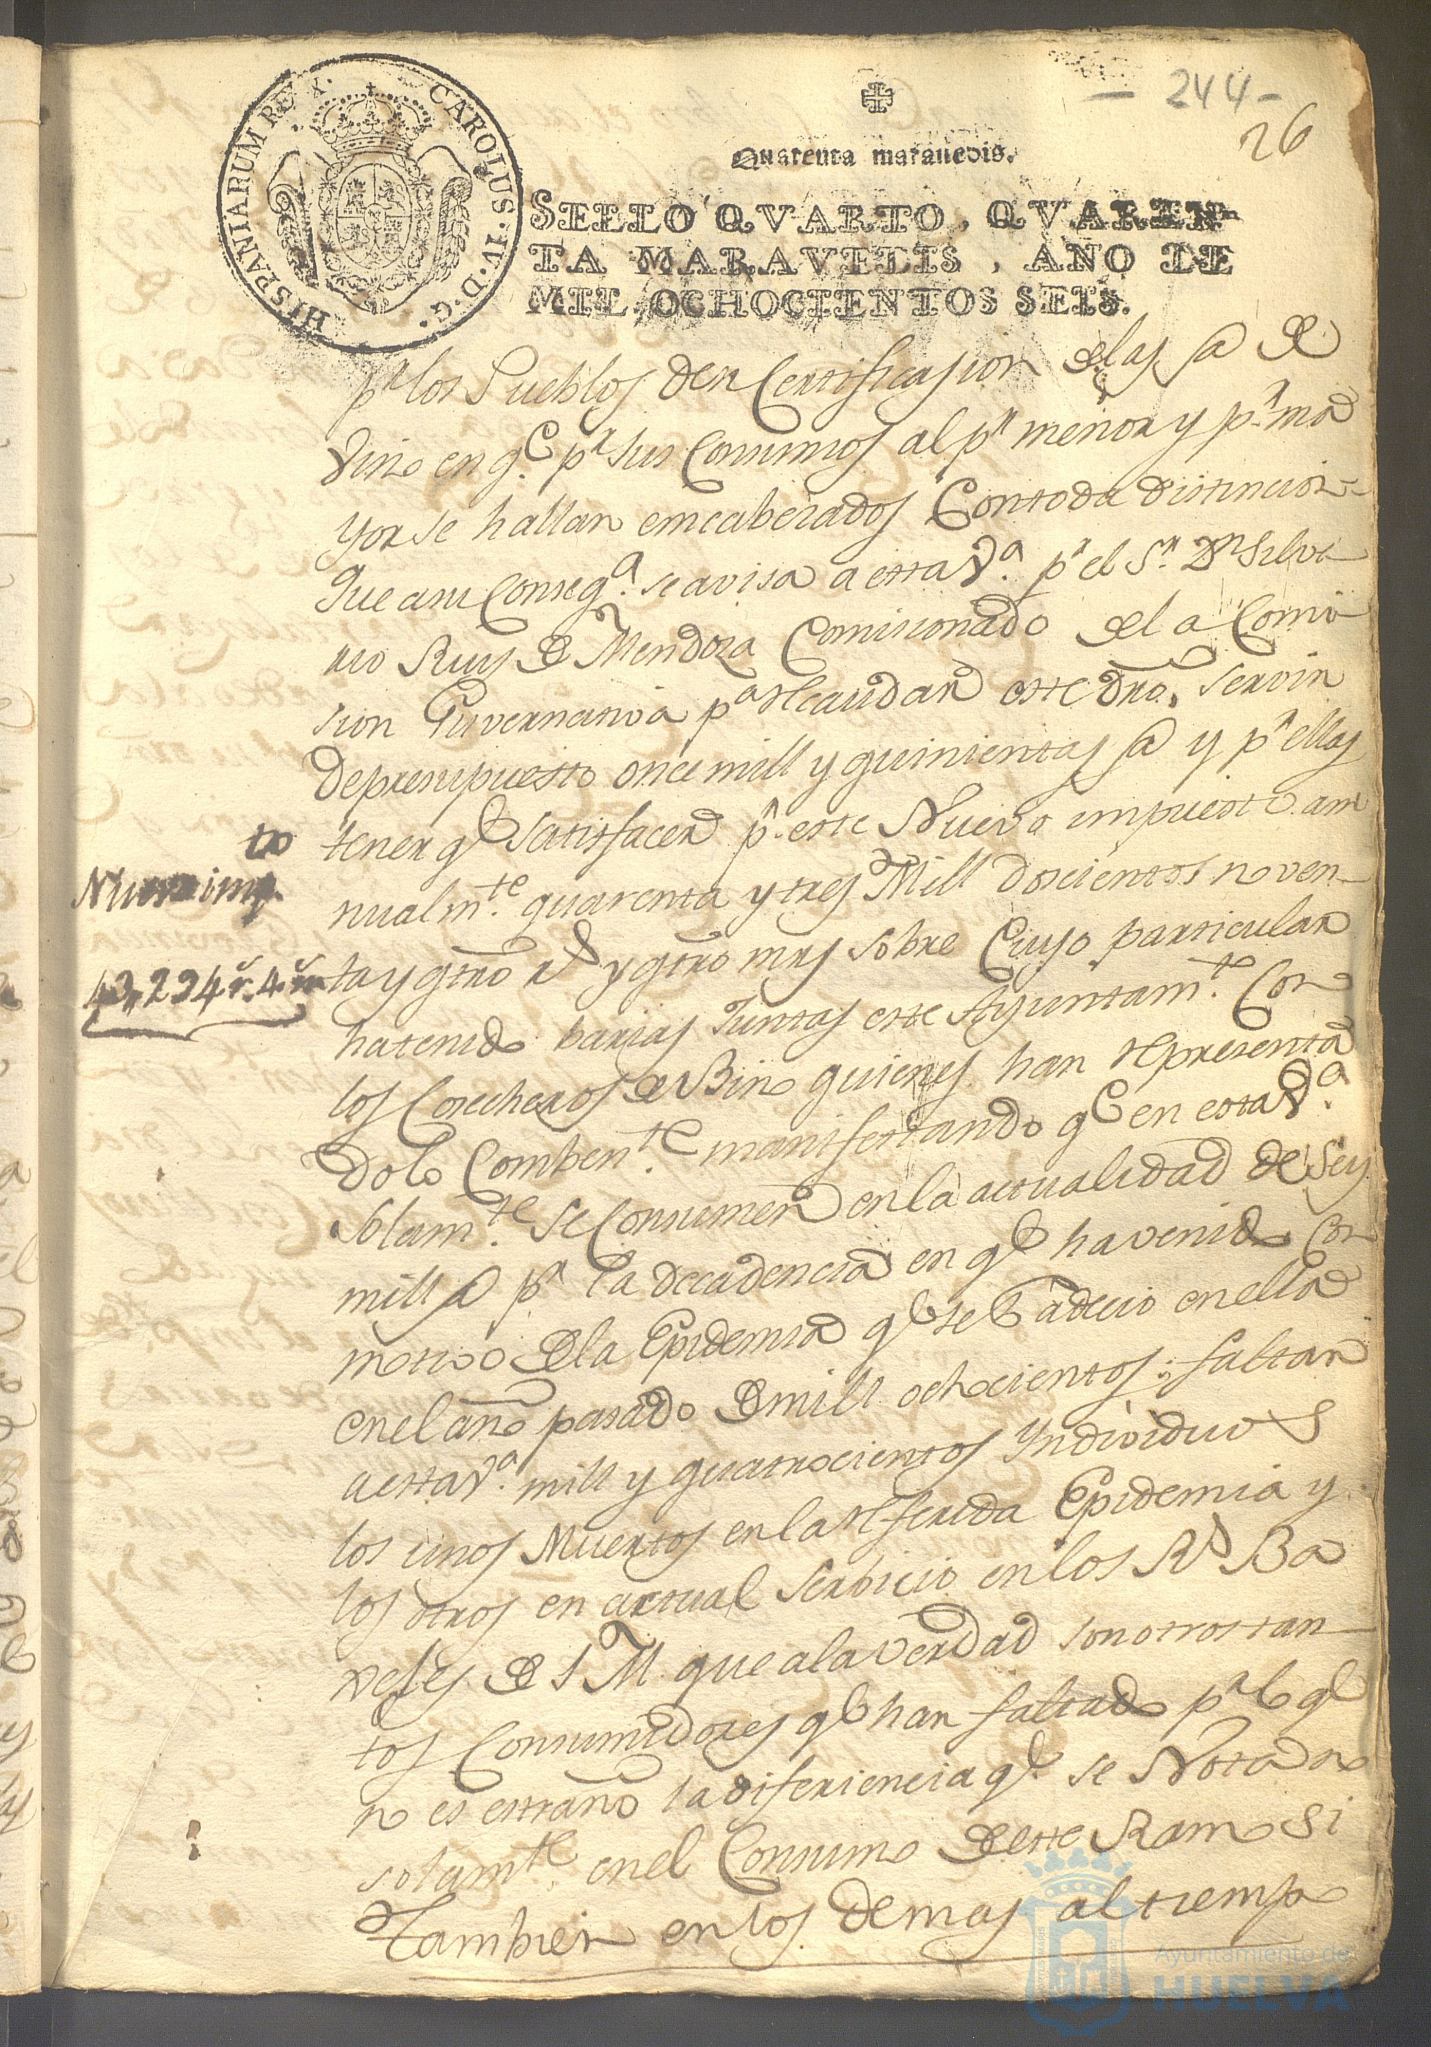 - 244 -
26
HISPANIARUM REX. CAROLUS·IV·D·G·
Quarenta maravedis.
SELLO QVARTO, QVAREN-
TA MARAVEDIS, AÑO DE
MIL OCHOCIENTOS SEIS.
pr los Pueblos den Certificasion de las @ de
vino en q.e pr sus Consumos al pr menor y pr ma
yor se hallan emcabezados Con toda distincion
que a su Conseq.a se avisa a esta V.a pr el Sr. Dn Silve
rio Ruys de Mendoza Comisionado de la Comi
sion Guvernativa pa recaudar este dro. servir
de presupuesto once mill y quinientas @ y pr ellas
tener qe satisfacer pr este Nuevo impuesto an
nualm.te quarenta y tres Mill doscientos noven-
ta y qtro rs y qtro mrs sobre Cuyo particular
ha tenido barias Juntas este Ayuntam.te Con
los Cosecheros de Bino quienes han representa
do lo Comben.te manifestando qe en esta V.a
solam.te se Consumen en la actualidad de seis
mill @ pr la decadencia en qe ha venido Con
motivo de la Epidemia qe se Padecio en ella
en el año pasado de mill ochocientos; faltan
a esta V.a mill y quatrocientos Yndividuos
los unos Muertos en la referida Epidemia y
los otros en actual serbicio en los Rs Ba
xeles de S M que a la verdad son otros tan
tos Consumidores qe han faltado pr lo qe
no es estraño la diferiencia qe se Nota no
solamte en el Consumo de este Ramo si
tambien en los demas al tiempo
to
Nuevo imp.
43,294 rs. 4 ms
Ayuntamiento de
HUELVA